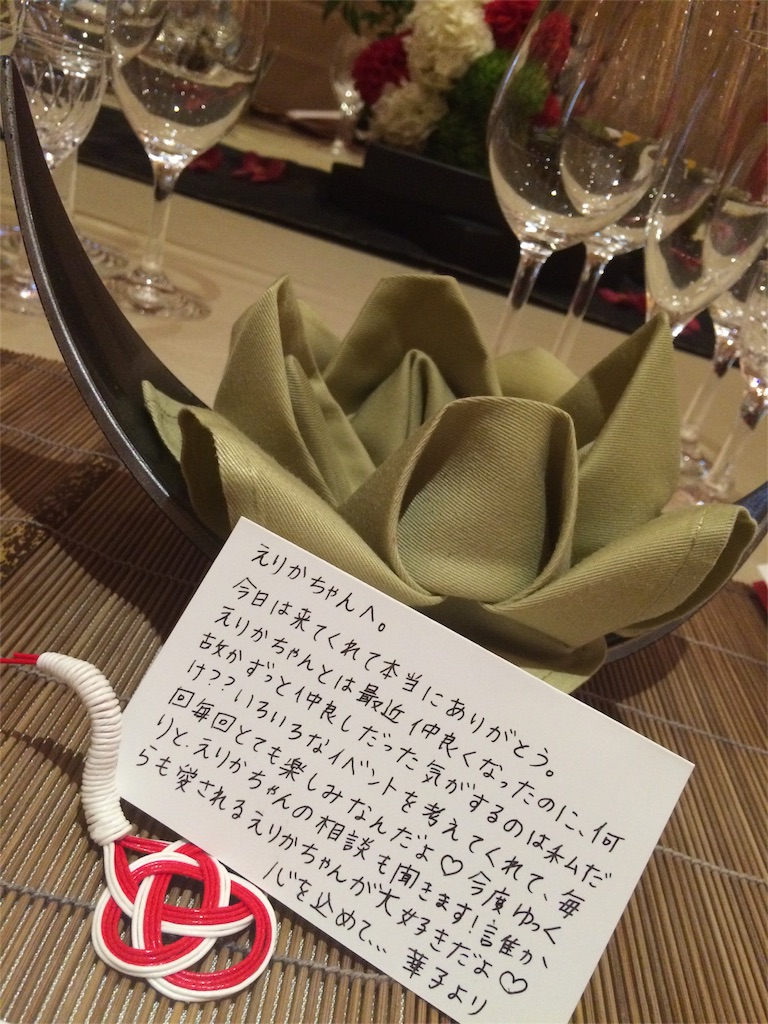 えりかちゃんへ。
今日は来てくれて本当にありがとう。
えりかちゃんとは最近仲良くなったのに、何
故かずっと仲良しだった気がするのは私だ
け??いろいろなイベントを考えてくれて、毎
回毎回とても楽しみなんだよ♡今度ゆっく
りと、えりかちゃんの相談も聞きます!誰か
らも愛されるえりかちゃんが大好きだよ♡
心を込めて… 華子より